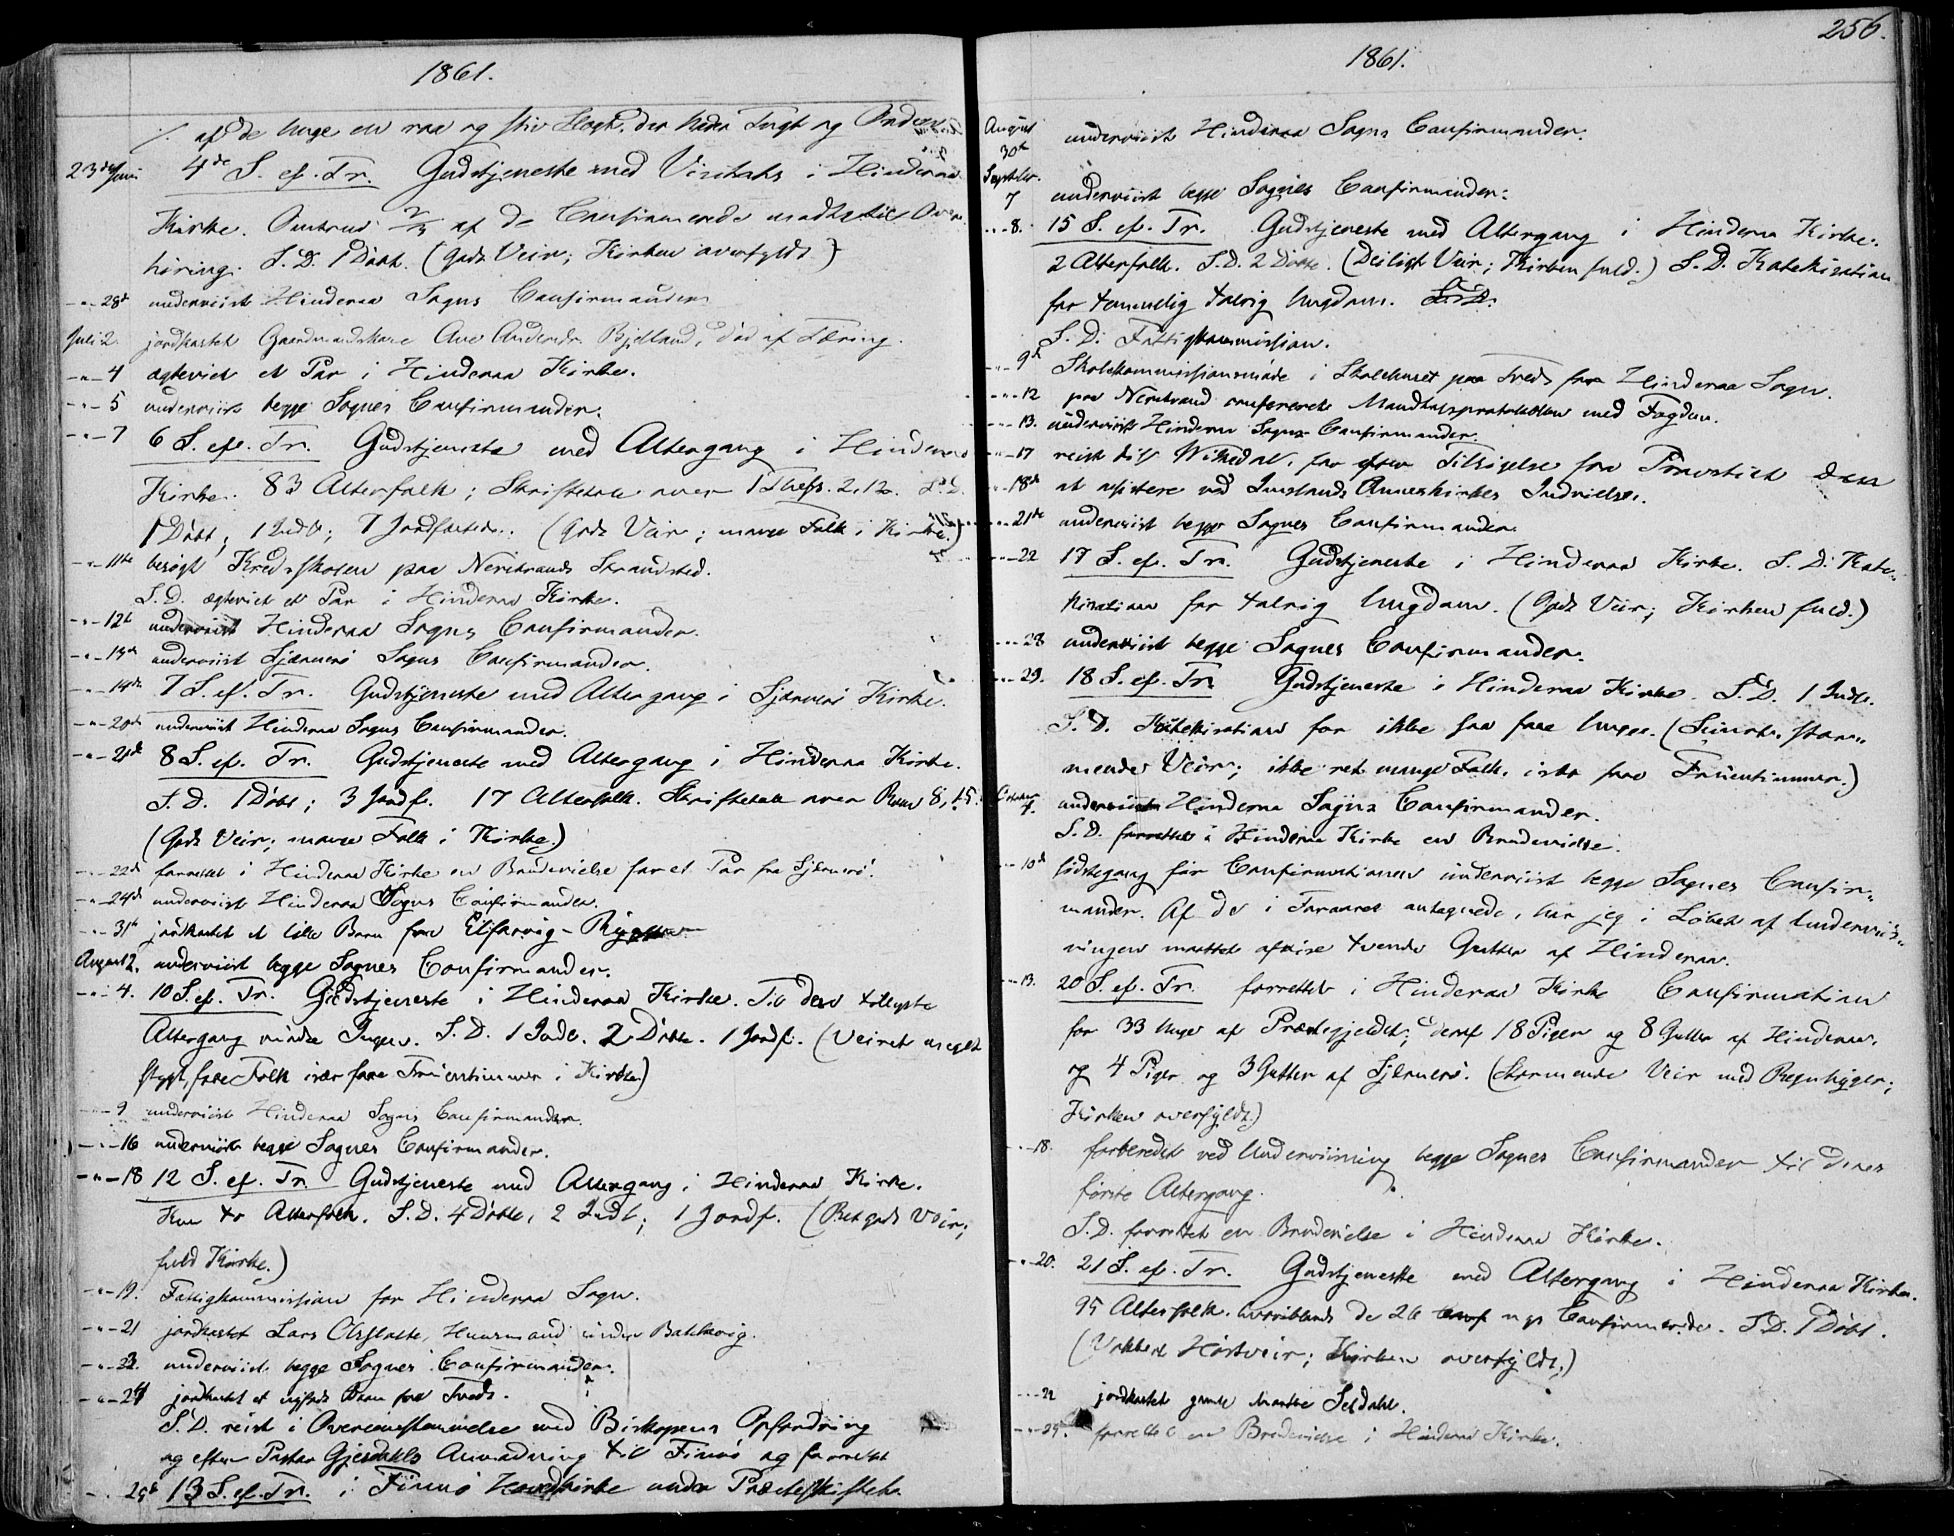 1861.
af de Unge en raa og stiv Slægt, der Tugt og
23de Juni 4de S. ef. Tr. Gudstjeneste med Visitats i Hinderaa
Kirke. Omtrent 2/3 af de Confirmerede mødte til Over-
høring. S. D. 1 Døbt. (Godt Veir; Kirken overfyldt.)
-"- 28de underviist Hinderaa Sogns Confirmander.
Juli 2. jordkastet Gaardmandskone Ane Andersdr. Bjelland, død af Tæring.
-"- 4 ægteviet et Par i Hinderaa Kirke.
-"- 5 underviist begge Sognes Confirmander.
-"- 7 6 S. ef. Tr. Gudstjeneste med Altergang i Hinderaa
Kirke. 83 Alterfolk; Skriftetale over 1 Thess. 2, 12. S. D.
1 Døbt; 1 Indl.; 7 Jordfæstede. (Godt Veir; mange Folk i Kirke.)
-"- 11te besøgt Kredsskolen paa Nerstrands Strandsted.
S. D. ægteviet et Par i Hinderaa Kirke.
-"- 12te underviist Hinderaa Sogns Confirmander.
-"- 13de underviist Sjærnerø Sogns Confirmander.
-"- 14de 7 S. ef. Tr. Gudstjeneste med Altergang i Sjærnerø Kirke.
-"- 20de underviist Hinderaa Sogns Confirmander.
-"- 21de 8 S. ef. Tr. Gudstjeneste med Altergang i Hinderaa Kirke.
S. D. 1 Døbt; 3 Jordf. 17 Alterfolk. Skriftetale over Rom 8, 15.
(Godt Veir; mange Folk i Kirke.)
-"- 22de forrettet i Hinderaa Kirke en Brudevielse for et Par fra Sjærnerø.
-"- 24de underviist Hinderaa Sogns Confirmander.
-"- 31te jordkastet et lille Barn fra Elfarvig-
August 2. underviist begge Sognes Confirmander.
-"- 4. 10 S. ef. Tr. Gudstjeneste i Hinderaa Kirke. Til den tillyste
Altergang mødte Ingen. S. D. 1 Indl. 2 Døbte. 1 Jordf. (Veiret meget
stygt, faae Folk især faae Fruentimmer i Kirke.)
-"- 9 underviist Hinderaa Sogns Confirmander.
-"- 16 underviist begge Sognes Confirmander.
-"- 18 12 S. ef. Tr. Gudstjeneste med Altergang i Hinderaa Kirke.
Kun to Alterfolk. S. D. 4 Døbte, 2 Indl.; 1 Jordf. (Ret godt Veir;
fuld Kirke.)
-"- 19. Fattigkommission for Hinderaa Sogn.
-"- 21 jordkastet Lars Huusmand under Bakkevig.
-"- 23. underviist begge Sognes Confirmander.
-"- 24 jordkastet et Barn fra Tveds.
S. D. reist i Overeensstemmelse med Biskopens Opfordring
og efter Pastor Gjesdahls Anmodning til Finnø og forrettet
-"- 25de 13 S. ef. Tr. i Finnø Hovedkirke under Præsteskiftet.
256.
1861.
August 30te underviist Hinderaa Sogns Confirmander.
Septbr. 7 underviist begge Sognes Confirmander.
-"- 8. 15 S. ef. Tr. Gudstjeneste med Altergang i Hinderaa Kirke.
2 Alterfolk. S. D. 2 Døbte. (Deiligt Veir; Kirken fuld.) S. D. Katekisation
for temmelig talrig Ungdom. S. D.
S. D. Fattigkommission.
-"- 9de Skolekommissionsmøde i Skolehuset paa Tveds for Hinderaa Sogn.
-"- 12 paa Nerstrand confererede Mandtalsprotokollen med Fogden.
-"- 13. underviist Hinderaa Sogns Confirmander.
-"- 17 reist til Wikedal, for efter Tilsigelse fra Provstiet den
18de at assistere ved Imslands Annexkirkes Indvielse.
-"- 21de underviist begge Sognes Confirmander.
-"- 22 17 S. ef. Tr. Gudstjeneste i Hinderaa Kirke. S. D. Kate-
kisation for talrig Ungdom. (Godt Veir; Kirken fuld.)
-"- 28 underviist begge Sognes Confirmander.
-"- 29. 18 S. ef. Tr. Gudstjeneste i Hinderaa Kirke. S. D. 1 Indl.
S. D. Katekisation for ikke saa faae Unge. ( stor-
mende Veir; ikke ret mange Folk, især faae Fruentimmer.)
October 4. underviist Hinderaa Sogns Confirmander.
S. D. forrettet i Hinderaa Kirke en Brudevielse.
-"- 10de sidstegang før Confirmationen underviist begge Sognes Confir-
mander. Af de i Foraaret antegnede, har jeg i Løbet af Underviis-
ningen maattet afvise tvende Gutter af Hinderaa.
-"- 13. 20 S. ef. Tr. forrettet i Hinderaa Kirke Confirmation
for 33 Unge af Præstegjeldet; deraf 18 Piger og 8 Gutter af Hinderaa,
og 4 Piger og 3 Gutter af Sjernerø. (Stormende Veir med Regnbyger;
Kirken overfyldt.)
-"- 18. forberedet ved Underviisning begge Sognes Confirmander til deres
første Altergang.
S. D. forrettet en Brudevielse i Hinderaa Kirke.
-"- 20. 21 S. ef. Tr. Gudstjeneste med Altergang i Hinderaa Kirke.
95 Alterfolk, hvoriblandt de 26 nys Confirmerede. S. D. 1 Døbt.
(Vakkert Høstveir; Kirken overfyldt.)
-"- 22 jordkastet gamle Marthe Seldahl.
-"- 25. forrettet en Brudevielse i Hinderaa Kirke.